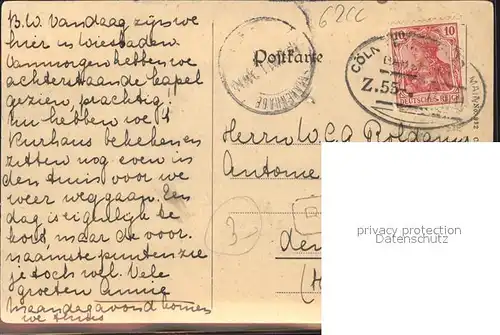 B.W. Vandaag zijn we
hier in Wiesbaden
Vanmorgen hebben we
achterstaande kapel
gezien, prachtig.
Nu hebben we 't
Kurhaus bekeken en
zitten nog even in
den tuin voor we
weer weg gaan. Een
dag is eigenlijk te
kort, maar de voor-
naamste punten zie
je toch wel. Vele
groeten Annie
Maandagavond komen
we thuis
62CC
Postkarte
CÖLN
MAINS
Z.55
10
DEUTSCHES REICH
Herrn W.C.A.
Antonie
3
den
privacy protection
Datenschutz